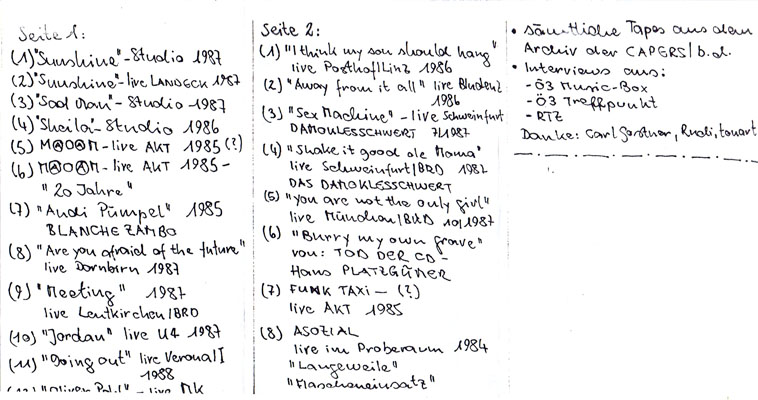 Seite 1:
(1) "Sunshine" - Studio 1987
(2) "Sunshine" - live LANDECK 1987
(3) "Sad Man" - Studio 1987
(4) "Sheila" - Studio 1986
(5) MⒶOⒶM - live AKT 1985 (?)
(6) MⒶOⒶM - live AKT 1985 -
"20 Jahre"
(7) "Andi Pümpel" 1985
BLANCHE ZAMBO
(8) "Are you afraid of the future"
live Dornbirn 1987
(9) "Meeting" 1987
live Leutkirchen/BRD
(10) "Jordan" live U4 1987
(11) "Going out" live Verona/I
1988
- live
Seite 2:
(1) "I think my son should hang"
live Posthof/Linz 1986
(2) "Away from it all" live Bludenz
1986
(3) "Sex Machine" - live Schweinfurt
DAMOKLESSCHWERT 7/1987
(4) "Shake it good ole Mama"
live Schweinfurt/BRD 1987
DAS DAMOKLESSCHWERT
(5) "you are not the only girl"
live München/BRD 10/1987
(6) "Burry my own grave"
von: TOD DER CD -
Hans PLATZGUMER
(7) FUNK TAXI - (?)
live AKT 1985
(8) ASOZIAL
live im Proberaum 1984
"Langeweile"
"Flascheneinsatz"
• sämtliche Tapes aus dem
Archiv der CAPERS/b.d.
• Interviews aus:
- Ö3 Music-Box
- Ö3 Treffpunkt
- RTZ
Danke: Carl Gerstner, Rudi, tonart